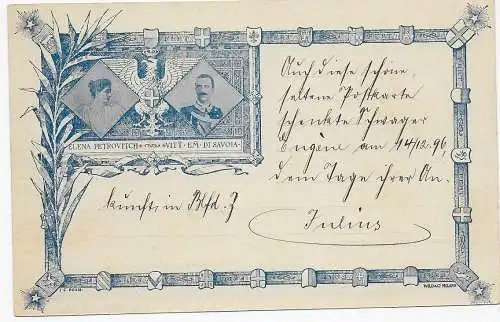 ELENA PETROVITCH VITT · EM · DI SAVOIA
Auch diese schöne,
seltene Postkarte
schenkte Schwager
Eugène am 14/12. 96,
dem Tage ihrer An-
kunft in Bhfd. Z
Julius